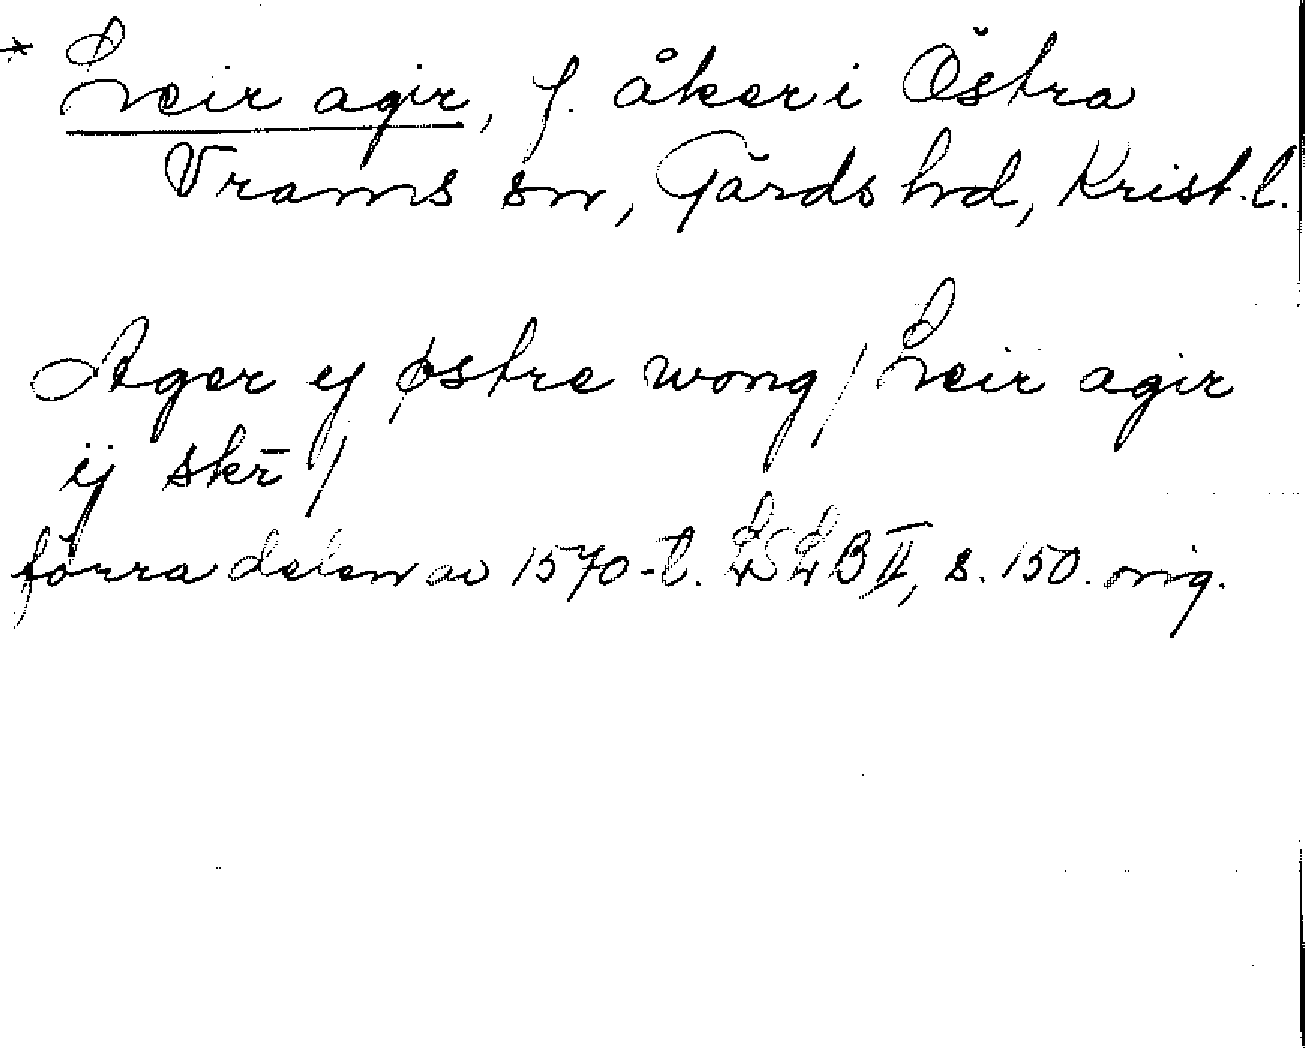 * Leir agir, f. åker i Östra
Vrams sn, Gärds hd, Krist. l.
Ager ej østre wong / Leir agir
ij skr̄ /
förra delen av 1570-t. LSLB II, s. 150. orig.